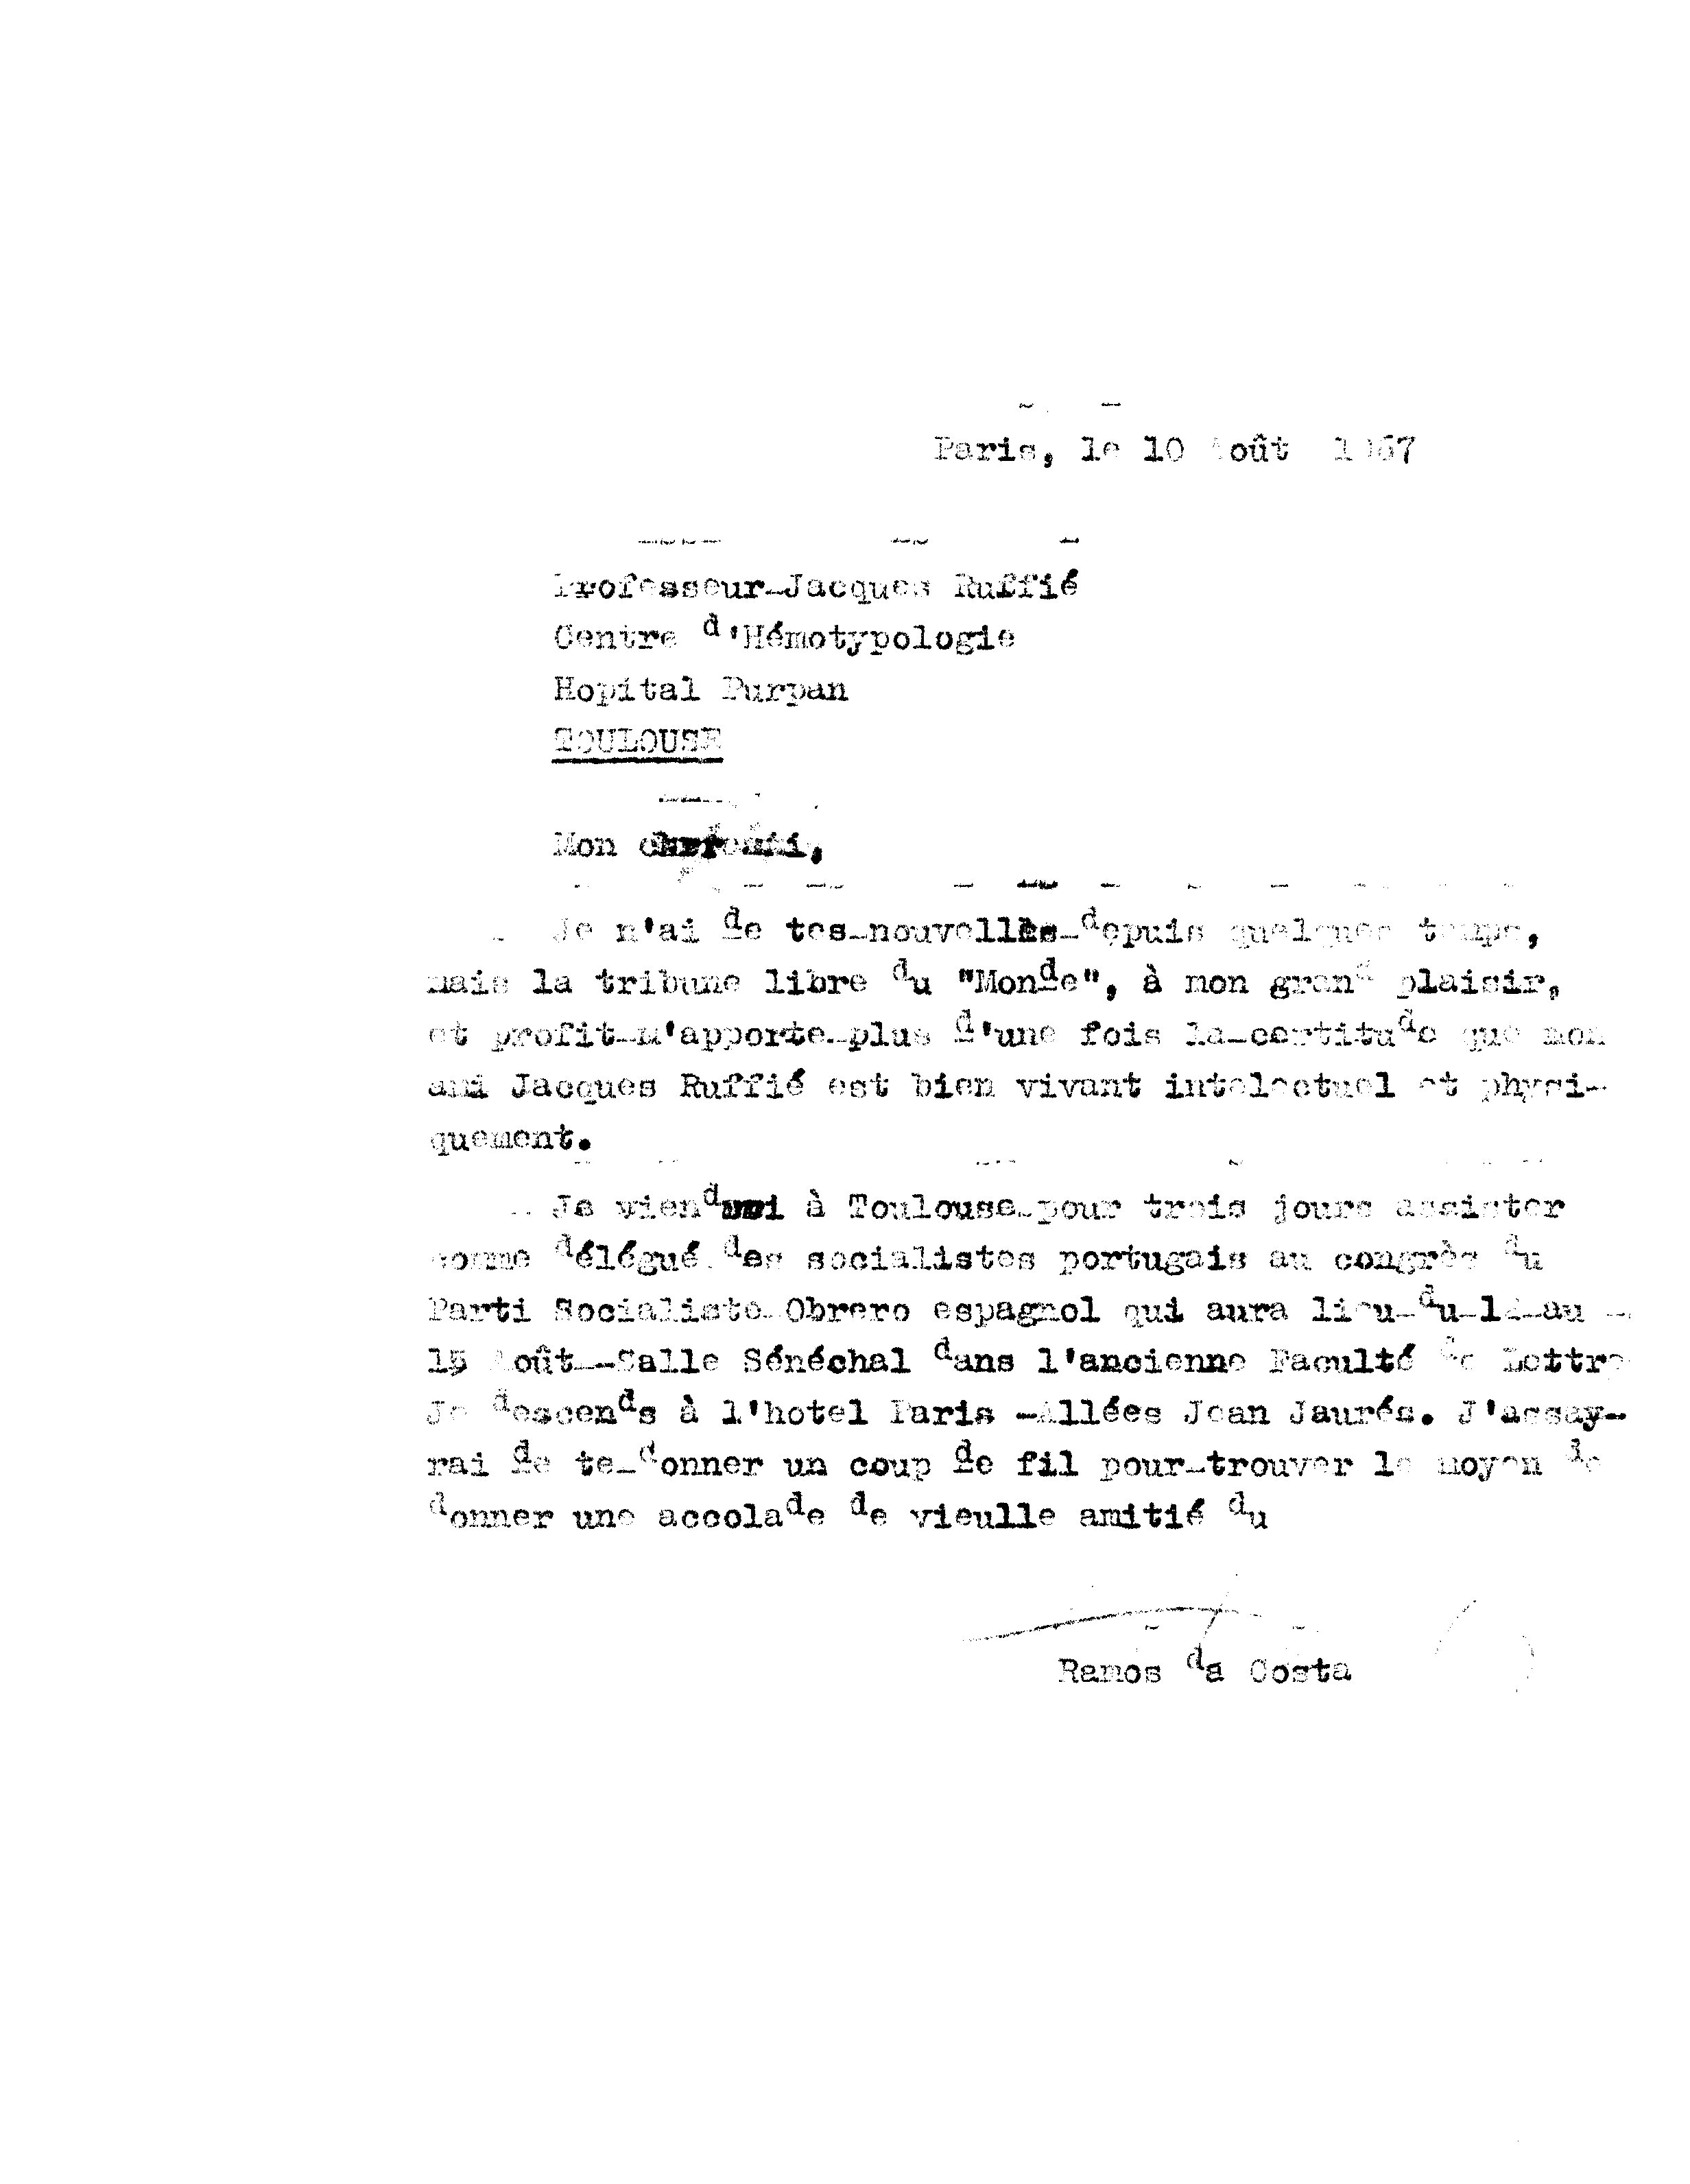 Paris, le 10 Août 1967
Professeur Jacques Ruffié
Centre d'Hémotypologie
Hopital Purpan
TOULOUSE
Mon
Je n'ai de tes nouvelles depuis quelques temps,
mais la tribune libre du "Monde", à mon grand plaisir,
et profit m'apporte plus d'une fois la certitude que mon
ami Jacques Ruffié est bien vivant intelectuel et physi-
quement.
Je viendrai à Toulouse pour trois jours assister
comme délégué des socialistes portugais au congrès du
Parti Socialiste Obrero espagnol qui aura lieu du au
15 Août - Salle Sénéchal dans l'ancienne Faculté de Lettre
Je descends à l'hotel Paris -Allées Jean Jaurés. J'assay-
rai de te donner un coup de fil pour trouver le moyen de
donner une accolade de vieulle amitié du
Ramos da Costa